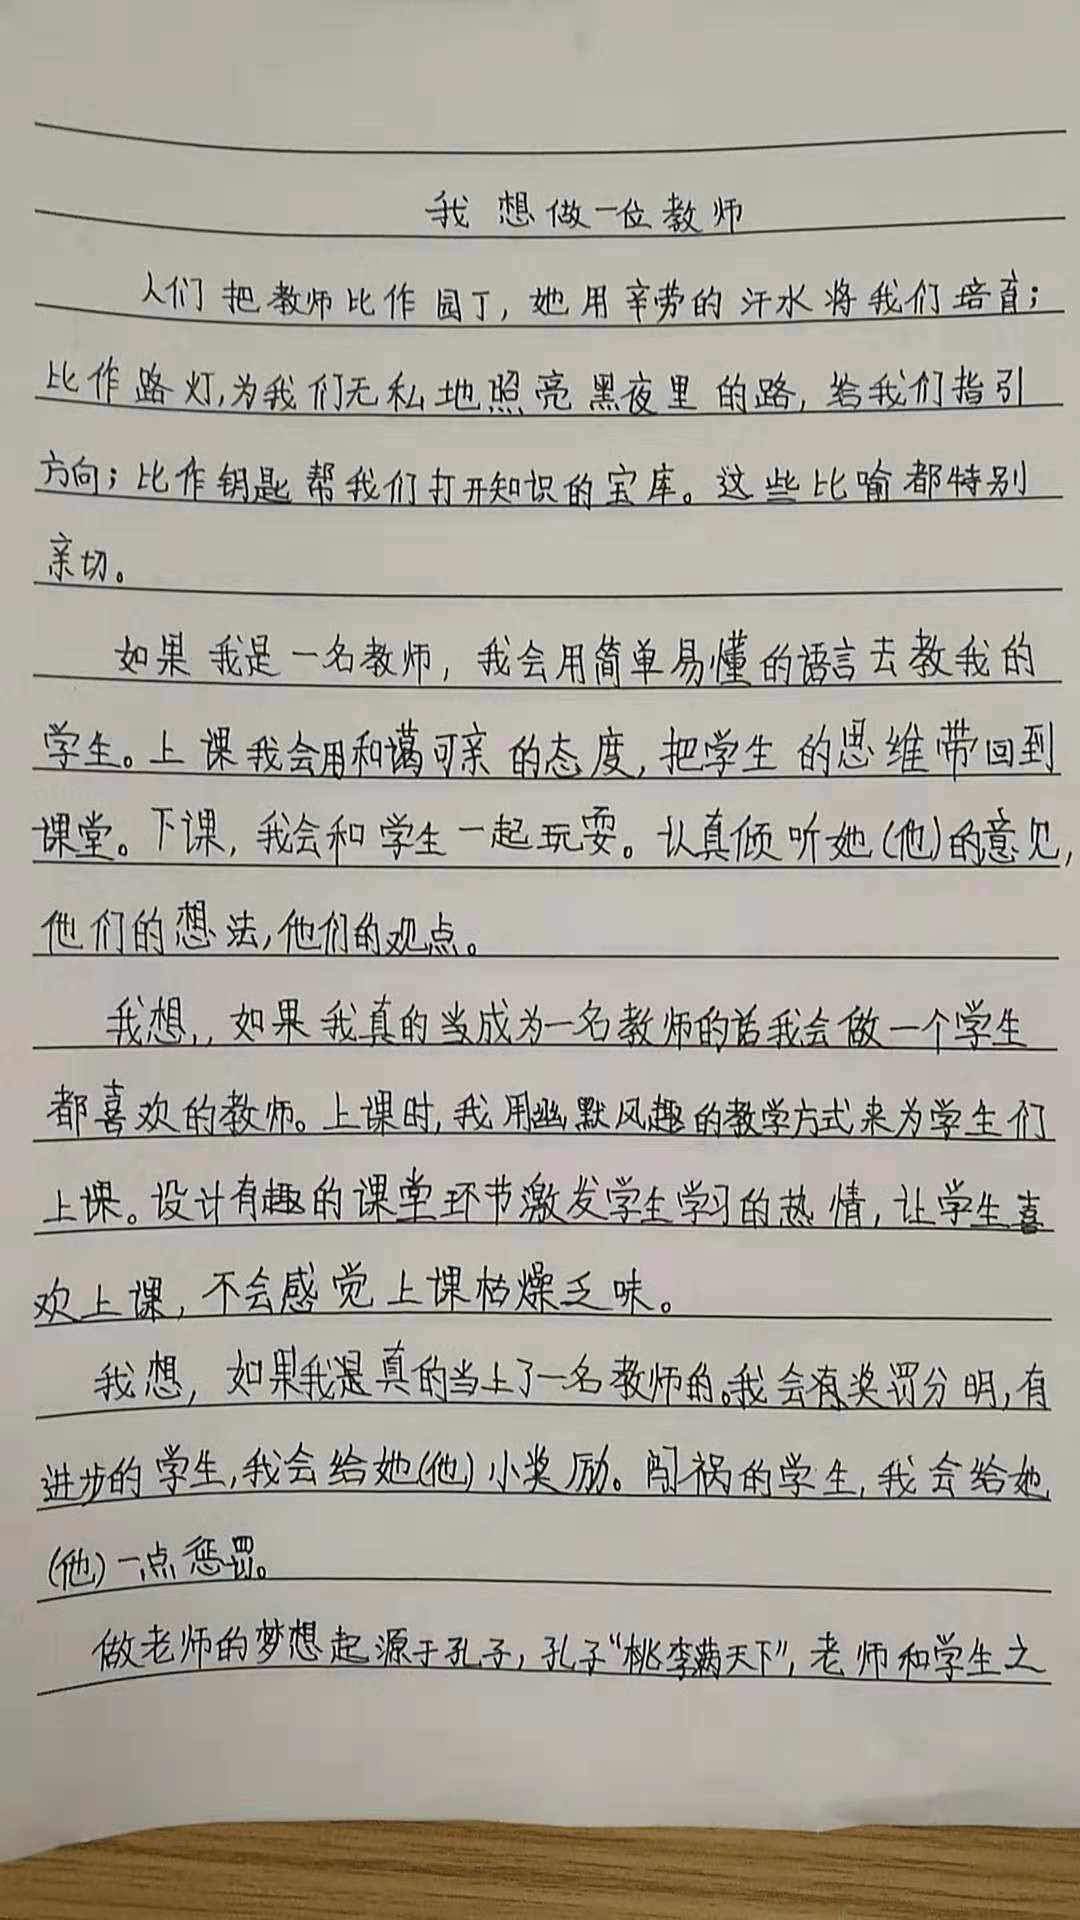 我想做一位教师
人们把教师比作园丁，她用辛劳的汗水将我们培育；
比作路灯，为我们无私地照亮黑夜里的路，给我们指引
方向；比作钥匙帮我们打开知识的宝库。这些比喻都特别
亲切。
如果我是一名教师，我会用简单易懂的语言去教我的
学生。上课我会用和蔼可亲的态度，把学生的思维带回到
课堂。下课，我会和学生一起玩耍。认真倾听她(他)的意见，
他们的想法，他们的观点。
我想，，如果我真的当成为一名教师的话我会做一个学生
都喜欢的教师。上课时，我用幽默风趣的教学方式来为学生们
上课。设计有趣的课堂环节激发学生学习的热情，让学生喜
欢上课，不会感觉上课枯燥乏味。
我想，如果我是真的当上了一名教师的。我会有奖罚分明，有
进步的学生，我会给她(他)小奖励。闯祸的学生，我会给她
(他)一点惩罚。
做老师的梦想起源于孔子，孔子“桃李满天下”，老师和学生之